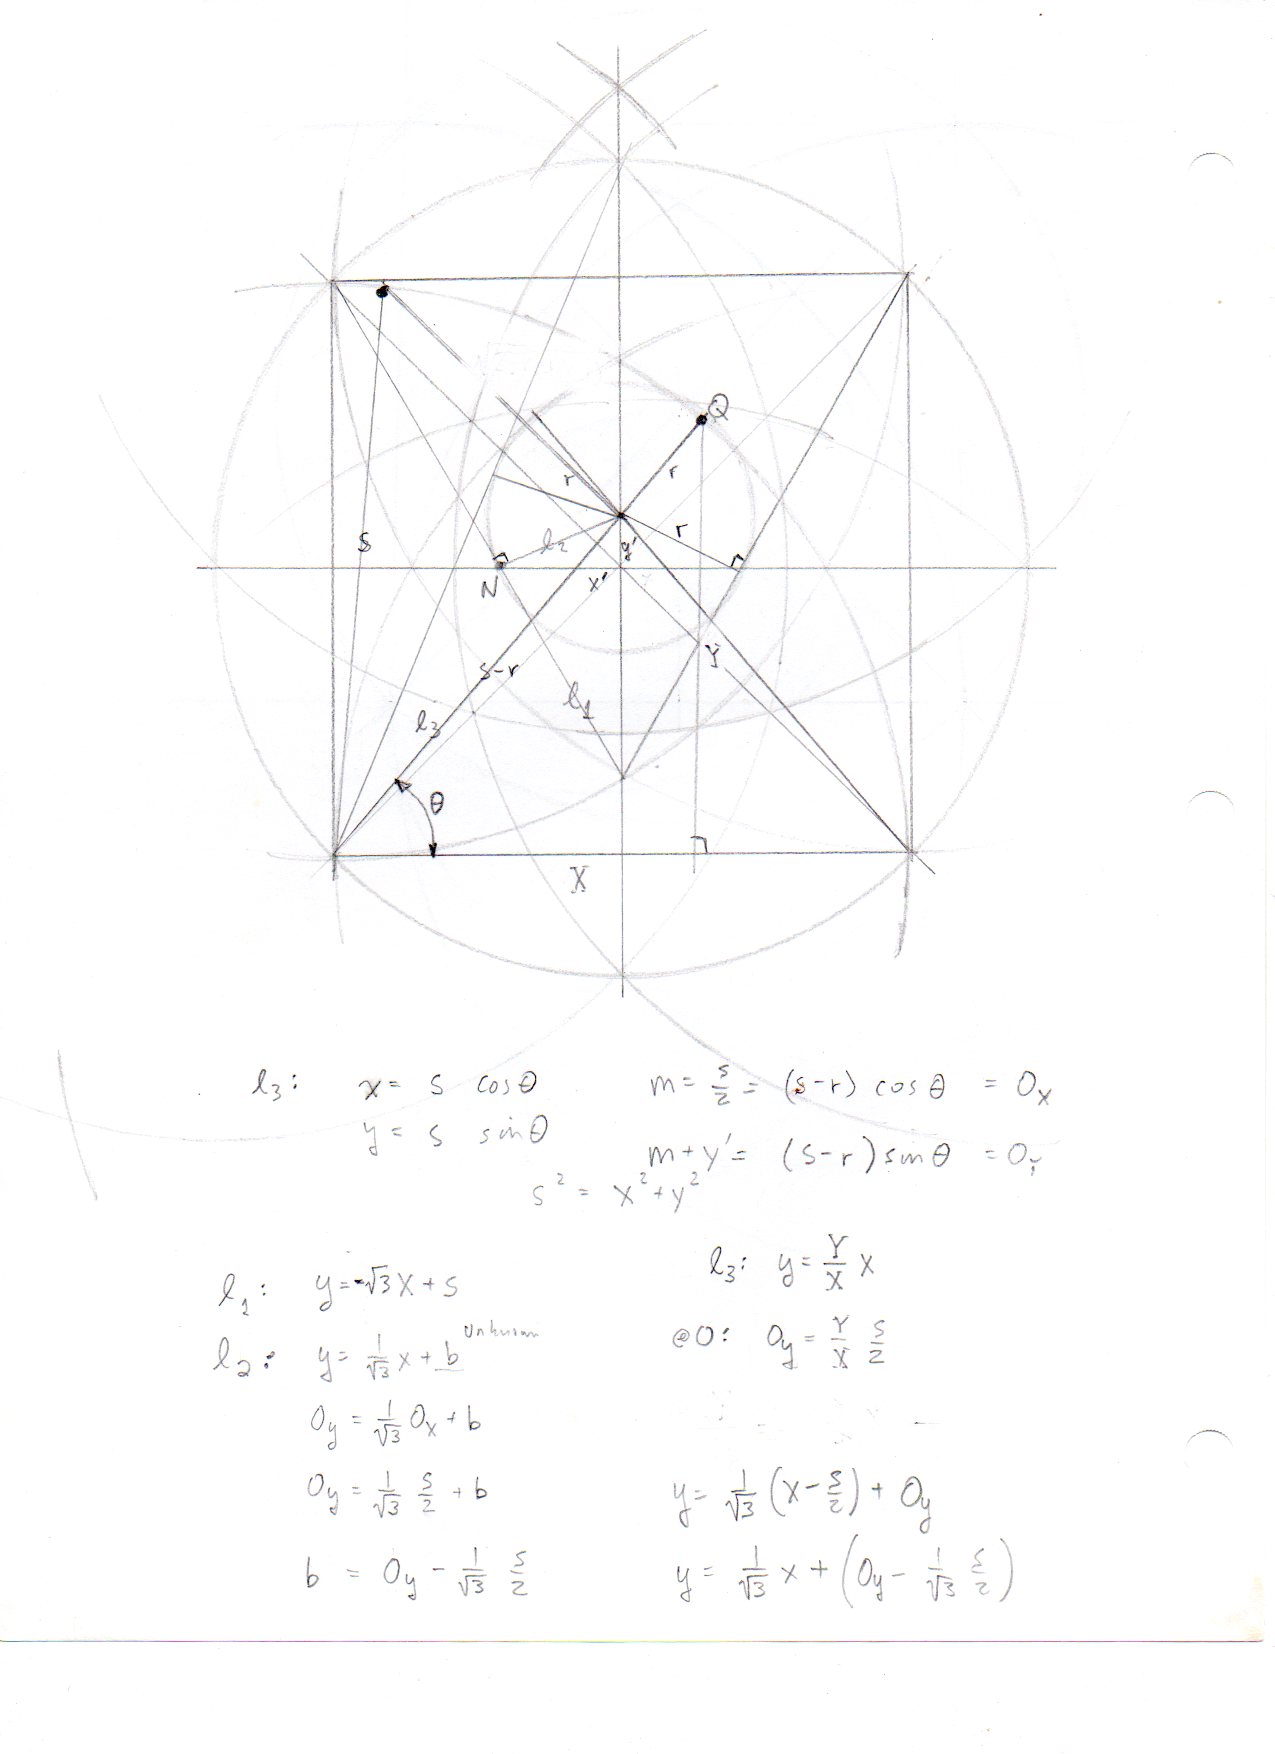 Q
r
r
r
S
l₂
y'
N
x'
Y
S-r
l₁
l₃
θ
X
l₃: x = S cosθ
y = S sinθ
m = S/2 = (S-r) cosθ = Oₓ
m+y' = (S-r) sinθ = Oᵧ
S² = x² + y²
l₁: y = -√3x + S
l₂: y = 1/√3 x + b unknown
O_y = 1/√3 Oₓ + b
O_y = 1/√3 S/2 + b
b = O_y - 1/√3 S/2
l₃: y = Y/X x
@O: O_y = Y/X S/2
y = 1/√3 (x - S/2) + O_y
y = 1/√3 x + (O_y - 1/√3 S/2)